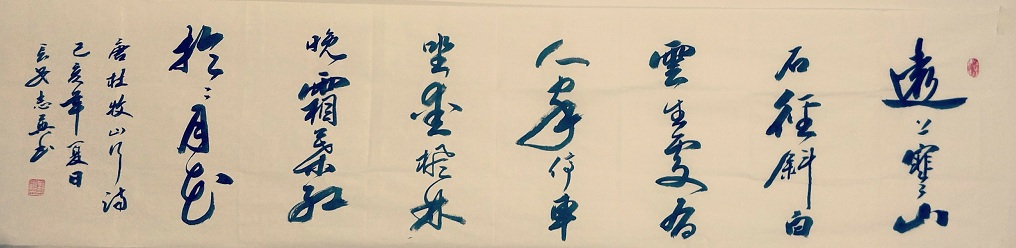 遠上寒山
石徑斜白
雲生處有
人家停車
坐愛枫林
晚霜葉紅
於二月花
唐杜牧山行诗
己亥年夏日
长安志书